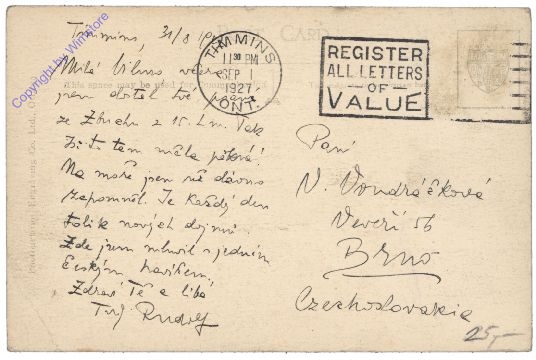 Timmins, 31/8 19
Milá Vilmo, včera
jsem dostal Tvé psaní
ze Zbirohu z 15. t.m. Tak
jsi tam měla pěkně!
Na moře jsem už dávno
zapomněl. Je každý den
tolik nových dojmů.
Zde jsem mluvil s jedním
českým havířem!
Zdraví Tě a líbá
Tvůj Rudolf
TIMMINS
11 30 PM
SEP 1
1927
ONT.
REGISTER
ALL LETTERS
OF
VALUE
Paní
V. Vondráčková
Veveří 56
Brno
Czechoslovakia
25,-
This space may be used for
Copyright by Winstore